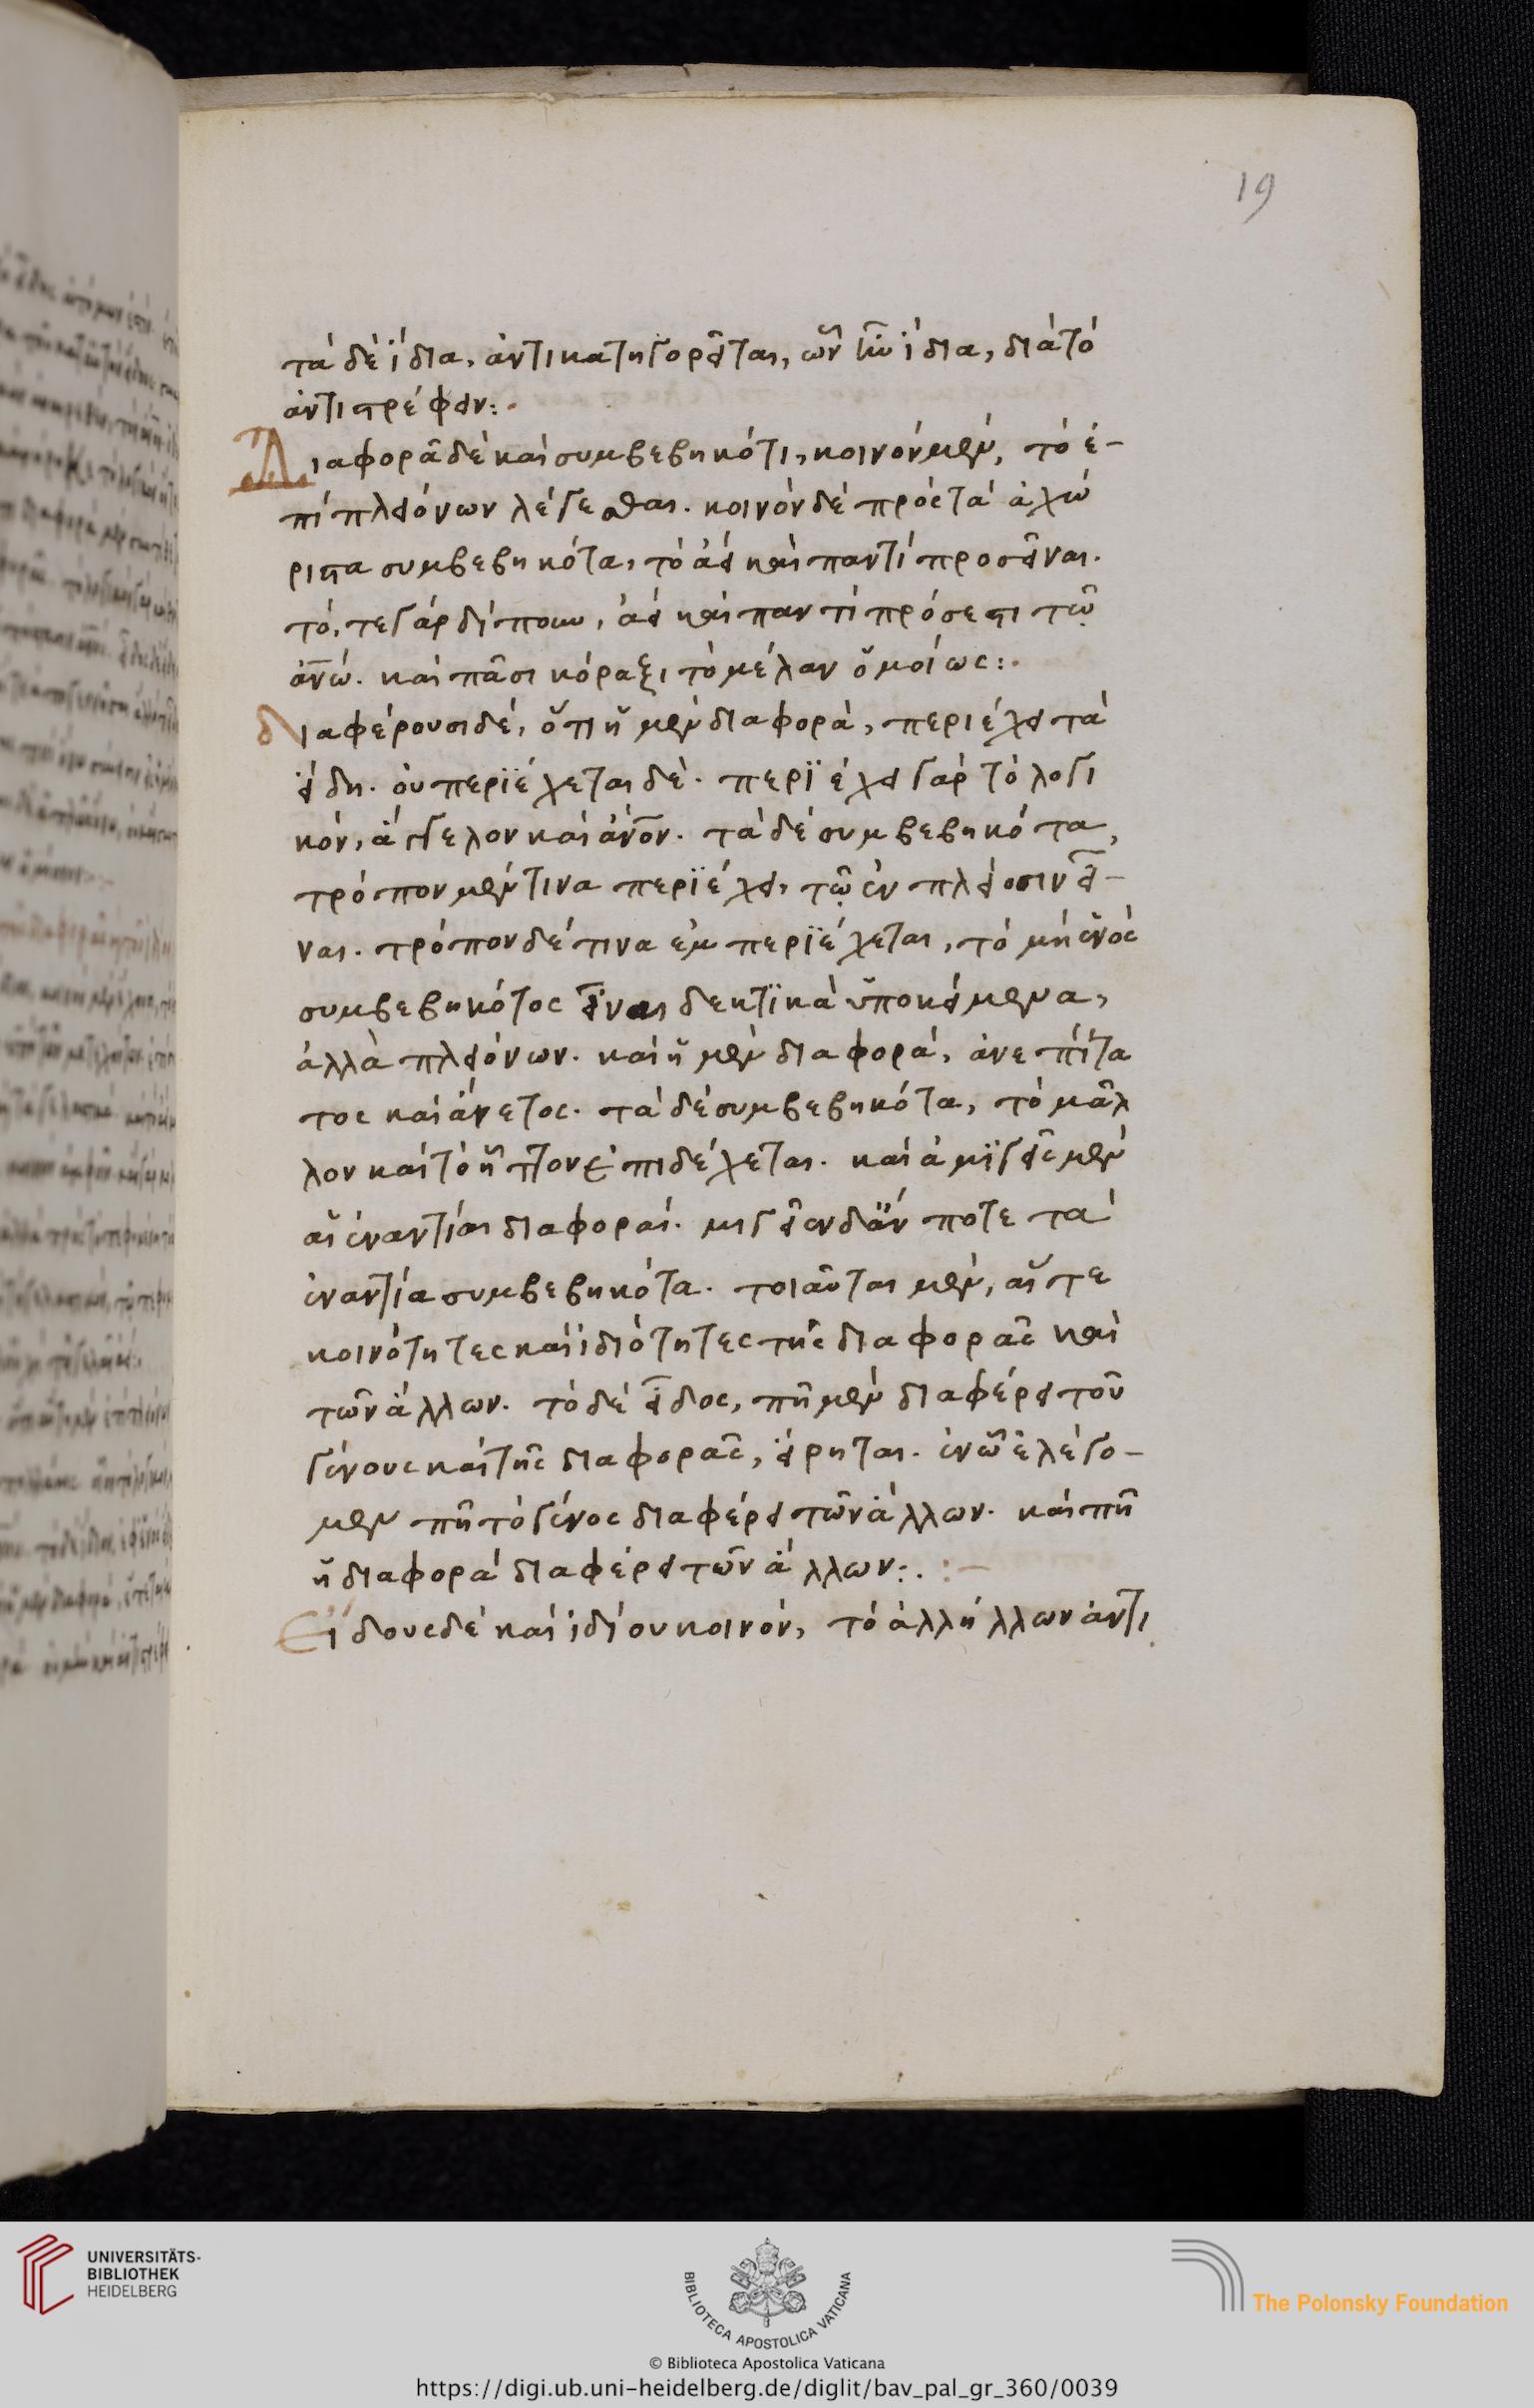 19
τὰ δὲ ἴδια, ἀντικατηγορεῖται, ὧν ἐστὶν ἴδια, διὰ τὸ
ἀντιστρέφειν:.
Διαφορᾶ δὲ καὶ συμβεβηκότι, κοινὸν μὲν, τὸ ἐ-
πὶ πλειόνων λέγεσθαι. κοινὸν δὲ πρὸς τὰ ἀχώ
ριστα συμβεβηκότα, τὸ ἀεὶ καὶ παντὶ προσεῖναι.
τό, τε γὰρ δίπουν, ἀεὶ καὶ παντὶ πρόσεστι τῷ
ἀνῶ. καὶ πᾶσι κόραξι τὸ μέλαν ὁμοίως:.
διαφέρουσι δέ, ὅτι ἡ μὲν διαφορὰ, περιέχει τὰ
εἴδη. οὐ περιέχεται δέ. περιέχει γὰρ τὸ λογι
κὸν, ἄγγελον καὶ ἄνον. τὰ δὲ συμβεβηκότα,
τρόπον μέν τινα περιέχει, τῷ ἐν πλείοσιν εἶ-
ναι. τρόπον δέ τινα ἐμπεριέχεται, τὸ μὴ ἑνὸς
συμβεβηκότος εἶναι δεκτικὰ ὑποκείμενα,
ἀλλὰ πλειόνων. καὶ ἡ μὲν διαφορά, ἀνεπίτα
τος καὶ ἄνετος. τὰ δὲ συμβεβηκότα, τὸ μᾶλ
λον καὶ τὸ ἧττον ἐπιδέχεται. καὶ ἀμιγεῖς μὲν
αἱ ἐναντίαι διαφοραί. μιγεῖεν δ' ἄν ποτε τὰ
ἐναντία συμβεβηκότα. τοιαῦται μὲν, αἵ τε
κοινότητες καὶ ἰδιότητες τῆς διαφορᾶς καὶ
τῶν ἄλλων. τὸ δὲ εἶδος, πῆ μὲν διαφέρει τοῦ
γένους καὶ τῆς διαφορᾶς, εἴρηται. ἐν ὧ ἐλέγο-
μεν πῆ τὸ γένος διαφέρει τῶν ἄλλων. καὶ πῆ
ἡ διαφορὰ διαφέρει τῶν ἄλλων:. :-
Εἴδους δὲ καὶ ἰδίου κοινὸν, τὸ ἀλλήλλων ἀντι
UNIVERSITÄTS-
BIBLIOTHEK
HEIDELBERG
BIBLIOTECA APOSTOLICA VATICANA
The Polonsky Foundation
© Biblioteca Apostolica Vaticana
https://digi.ub.uni-heidelberg.de/diglit/bav_pal_gr_360/0039